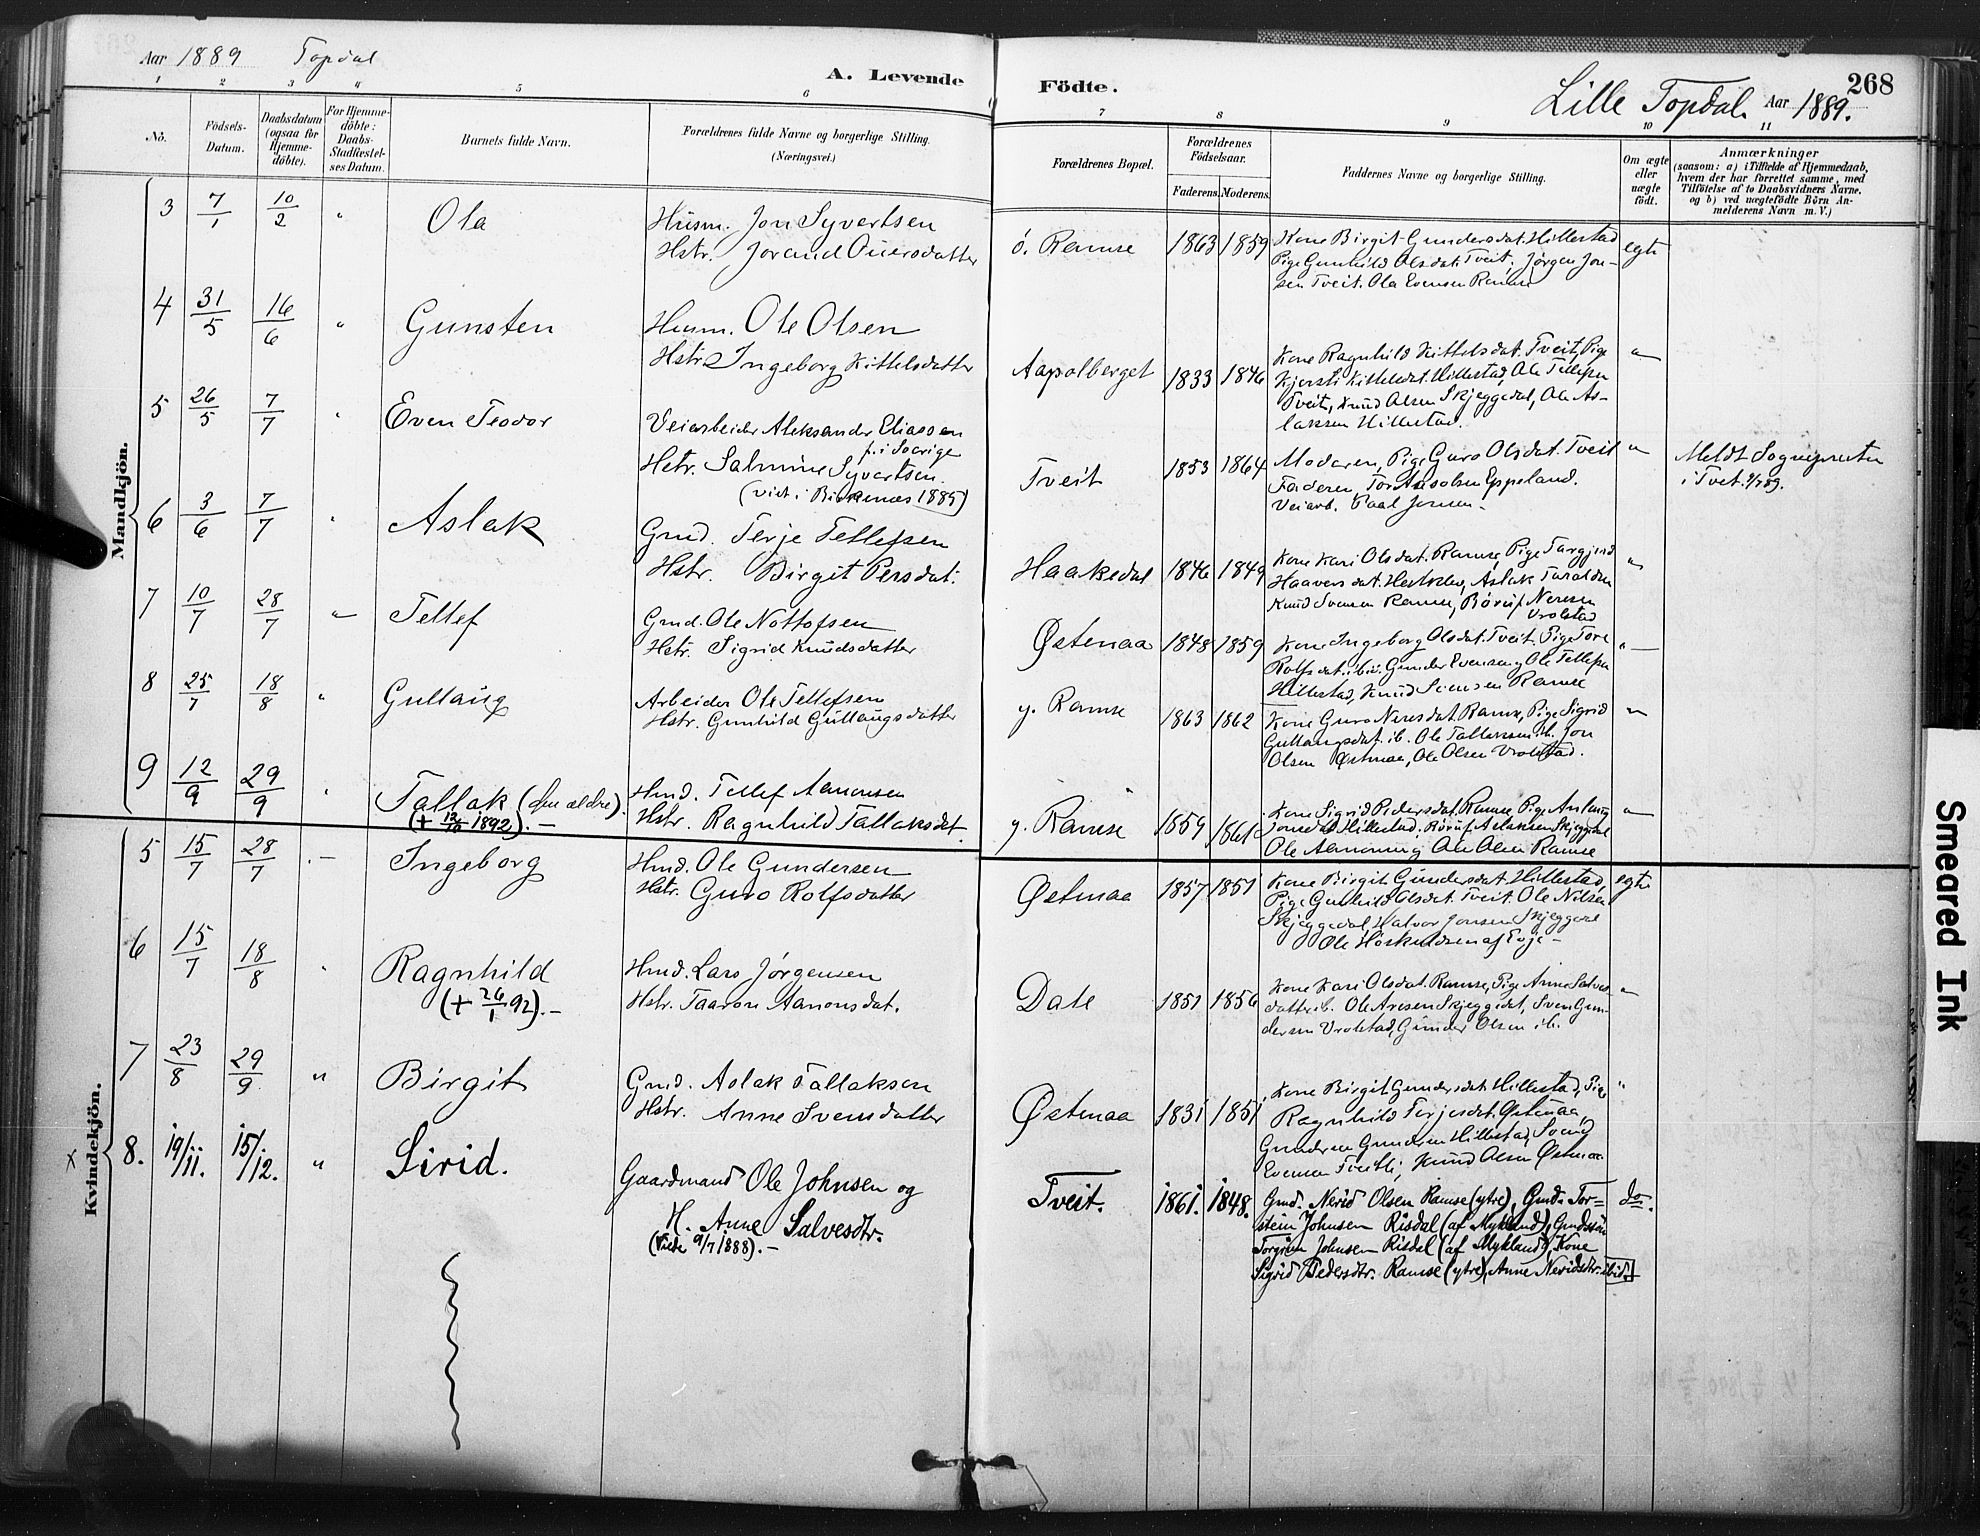 Aar 1889 Topdal
A. Levende Födte.
Lille Topdal. Aar 1889.
268
1 2 3 4 5 6 7 8 9 10 11
No.
Födsels-Datum.
Daabsdatum (ogsaa for Hjemme-döbte).
For Hjemme-döbte: Daabs-Stadfæstel-ses Datum.
Barnets fulde Navn.
Forældrenes fulde Navne og borgerlige Stilling.
(Næringsvei.)
Forældrenes Bopæl.
Forældrenes Födselsaar.
Faderens. Moderens.
Faddernes Navne og borgerlige Stilling.
Om ægte eller uægte födt.
Anmærkninger
(saasom: a) i Tilfælde af Hjemmedaab, hvem der har forrettet samme, med Tilföielse af to Daabsvidners Navne, og b) ved uægtefödte Börn An-melderens Navn m. V.)
Mandkjön.
3 7/1 10/2 " Ola
Husm. Jon Syvertsen
Hstr. Jorand
ö. Ramse 1863 1859
Kone Birgit Gundersdat. Hillestad
Pige Gunhild Olsdat. Tveit, Jørgen Jon-
sen Tveit. Ola Evensen Ramse
egte
4 31/5 16/6 " Gunsten
Husm. Ole Olsen
Hstr. Ingeborg Kittelsdatter
Aapolberget 1833 1846
Kone Ragnhild Kittelsdat. Tveit, Pige
Kjersti Kittelsdat. Hillestad, Ole Tellefsen
Tveit, Knud Olsen Skjeggedal, Ole As-
laksen Hillestad.
"
5 26/5 7/7 " Even Teodor
Veiarbeider Aleksander Eliassen
f. i Sverige
Hstr. Salmine Syvertsen.
(viet i Birkenæs 1885)
Tveit 1853 1864
Moderen, Pige Guro Olsdat. Tveit
Faderen Tor Eppeland.
Veiarb. Paal Jensen
"
Meldt Sognepresten
i Tvet
6 3/6 7/7 " Aslak
Gmd. Terje Tellefsen
Hstr. Birgit Persdat.
Haakedal 1846 1849
Kone Kari Olsdat. Ramse, Pige Targjerd
Haavorsdat. Aslak Taraldsen
Knud Svensen Ramse, Børuf Neresen
Vrolstad
"
7 10/7 28/7 " Tellef
Gmd. Ole Nottofsen
Hstr. Sigrid Knudsdatter
Østenaa 1848 1859
Kone Ingeborg Olsdat. Tveit. Pige Tore
Rolfsdat. ib. Gunder Evensen, Ole Tellefsen
Hillestad, Knud Svensen Ramse
"
8 25/7 18/8 " Gullaug
Arbeider Ole Tellefsen
Hstr. Gunhild Gullaugsdatter
y. Ramse 1863 1862
Kone Guro Neresdat. Ramse, Pige Sigrid
Gullaugsdat. ib. Ole Tallaksen ib. Jon
Olsen Østenaa, Ole Olsen Vrolstad.
"
9 12/9 29/9 " Tallak (den ældre).
(+ 12/10 1892). -
Hmd. Tellef Aanonsen
Hstr. Ragnhild Tallaksdat.
y. Ramse 1859 1861
Kone Sigrid Pedersdat. Ramse, Pige Anlaug
Jonsdat. Hillestad, Børuf Aslaksen Skjeggedal
Ole Aanonsen og Ole Olsen Ramse
"
Kvindekjön.
5 15/7 28/7 Ingeborg
Hmd. Ole Gundersen
Hstr. Guro Rolfsdatter
Østenaa 1857 1851
Kone Birgit Gundersdat. Hillestad,
Pige Gunhild Olsdat. Tveit. Ole Nilsen
Skjeggedal, Halvor Jonsen Skjeggedal
Ole Høskuldsen af Evje -
egte
6 15/7 18/8 " Ragnhild
(+ 26/1 92). -
Hmd. Lars Jørgensen
Hstr. Taaron Aanonsdat.
Dale 1851 1856
Kone Kari Olsdat. Ramse, Pige Anne Salves-
datter ib. Ole Aresen Skjeggedal, Sven Gun-
dersen Vrolstad, Gunder Olsen ib.
"
7 23/8 29/9 " Birgit
Gmd. Aslak Tallaksen
Hstr. Anne Svensdatter
Østenaa 1831 1851
Kone Birgit Gundersdat. Hillestad, Pige
Ragnhild Terjesdat. Østenaa,
Gundersen Hillestad, Svend
Evensen Tveit, Knud Olsen Østenaa
"
x 8. 19/11. 15/12. " Sirid.
Gaardmand Ole Johnsen og
H. Anne Salvesdtr.
(Viede 9/7 1888). -
Tveit. 1861. 1848.
Gmd. Nerid Olsen Ramse (ytre), Gmd. Tor-
stein Johnsen Risdal (af Mykland), Gmdssøn
Torgrim Johnsen Risdal (af Mykland), Kone
Sigrid Pedersdtr. Ramse (ytre), Anne Neridsdtr. ibid.
do.
Smeared Ink